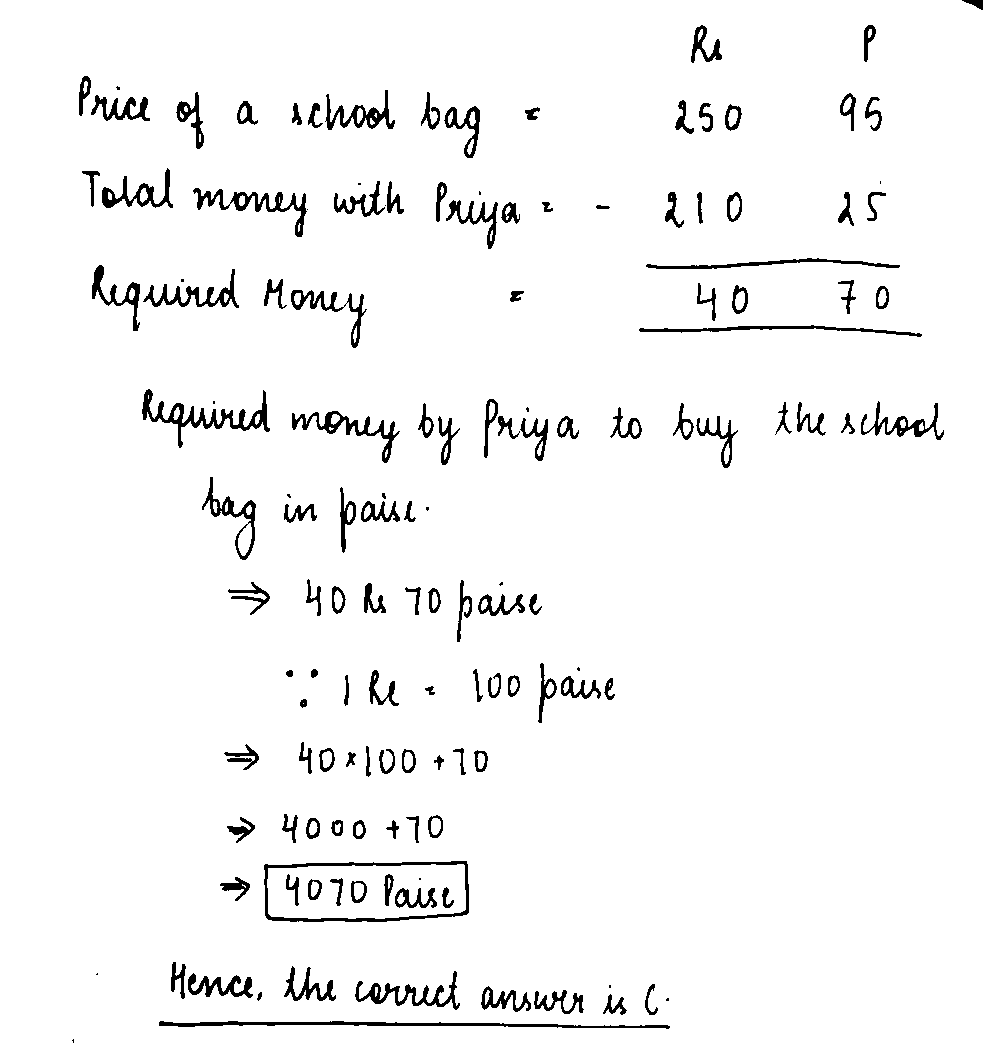 Rs P
Price of a school bag = 250 95
Total money with Priya = - 210 25
Required Money = 40 70
Required money by Priya to buy the school
bag in paise.
⇒ 40 Rs 70 paise
∵ 1 Re = 100 paise
⇒ 40×100 +70
⇒ 4000 +70
⇒ 4070 Paise
Hence, the correct answer is C.